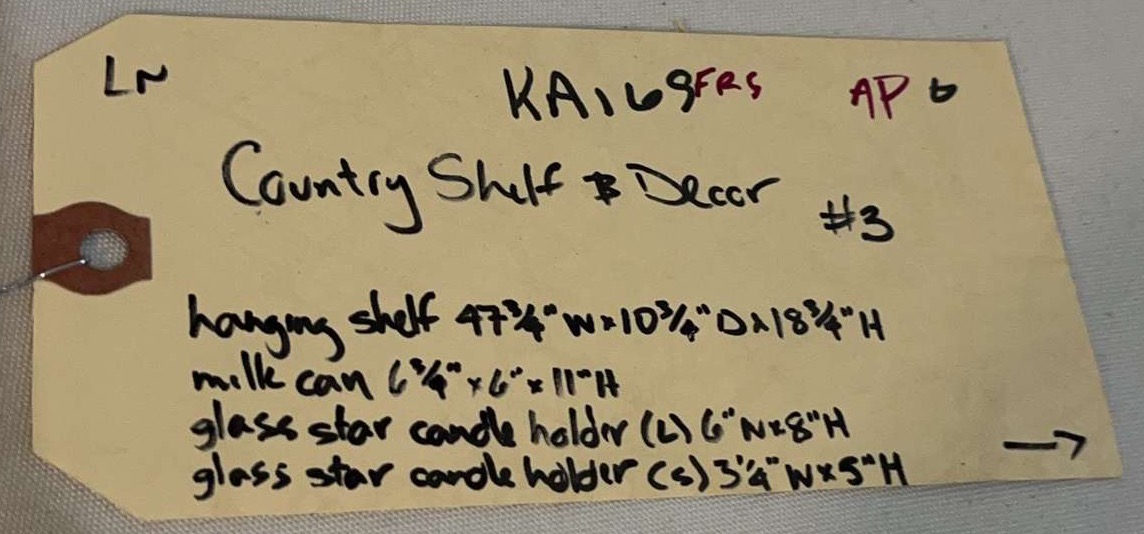 LN KA169 FRS AP 6
Country Shelf & Decor #3
hanging shelf 47¾" W x 10¾" D x 18¾" H
milk can 6¾" x 6" x 11" H
glass star candle holder (L) 6" W x 8" H
glass star candle holder (s) 3¼" W x 5" H
→